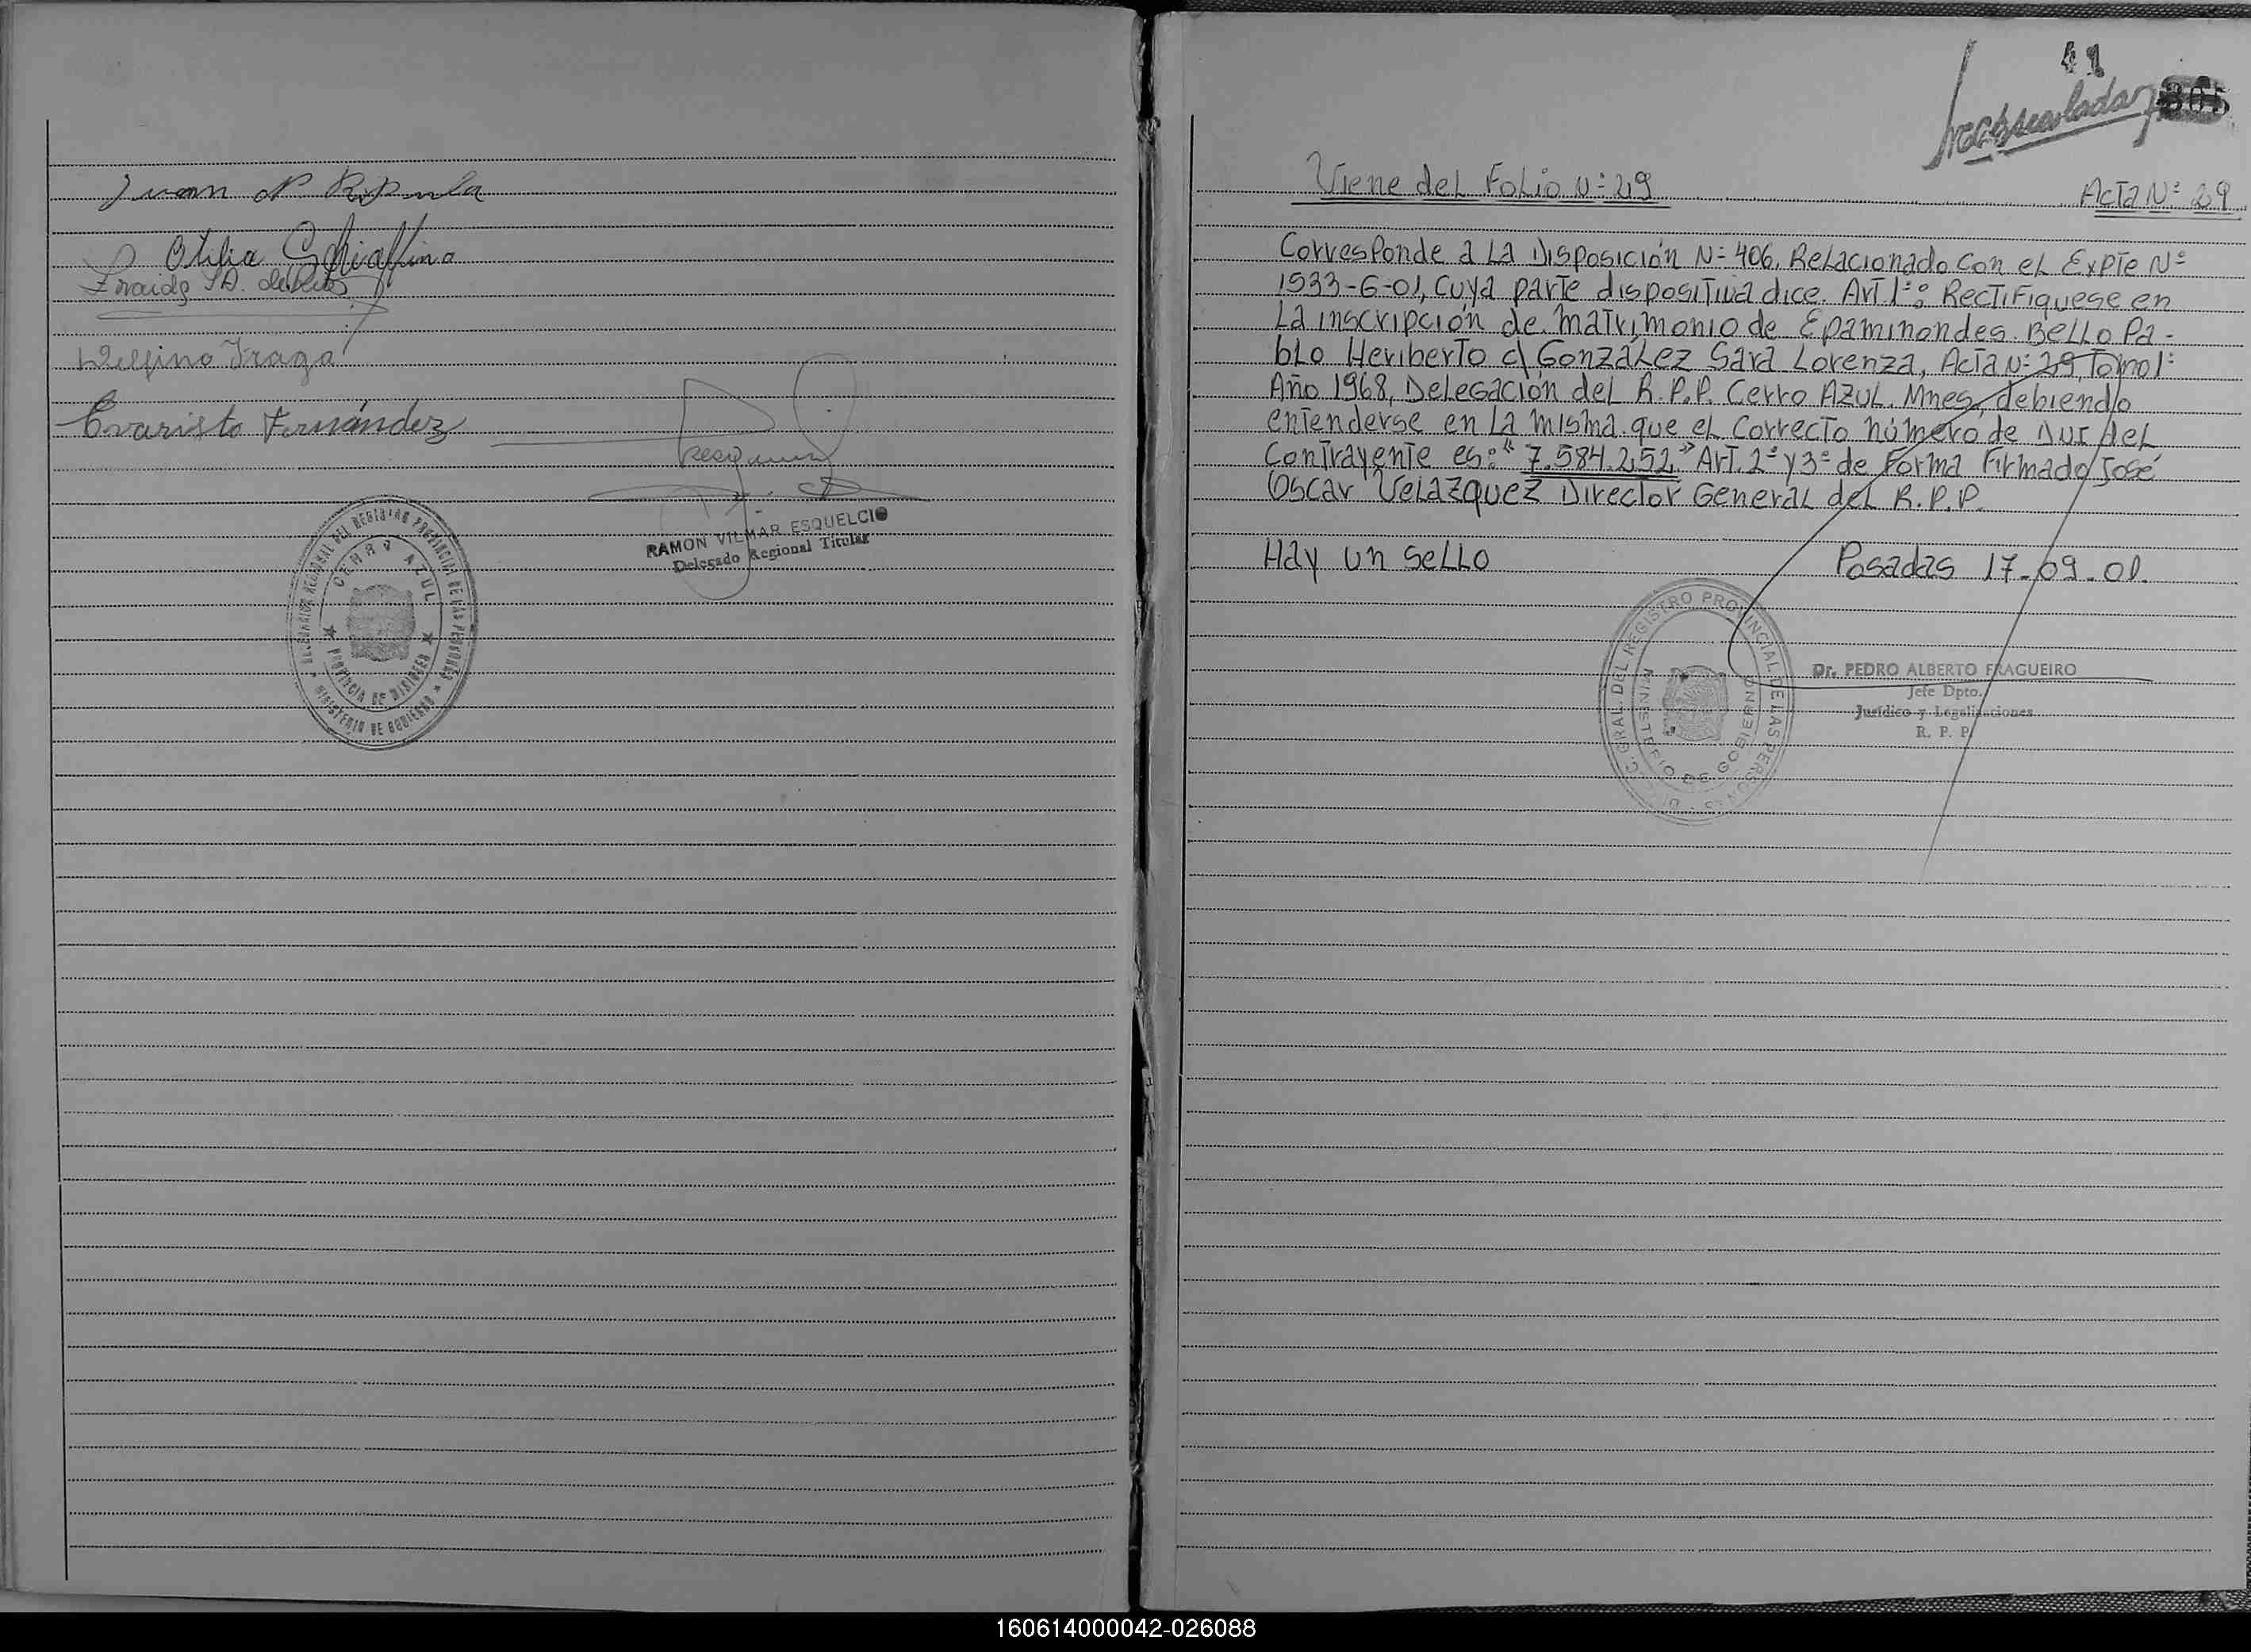 Juan
Otilia
Evaristo Fernández
RAMON VILMAR ESQUELCIO
Delegado Regional Titular
DELEGACION REGIONAL DEL REGISTRO PROVINCIAL DE LAS PERSONAS
CERRO AZUL
PROVINCIA DE MISIONES
MINISTERIO DE GOBIERNO
41
305
Viene del Folio N:29
Acta Nº 29
Corresponde a La Disposición N=406, Relacionado con el Expte Nº
1533-6-01, cuya parte dispositiva dice. Art 1º: Rectifiquese en
La inscripción de matrimonio de Epaminondes Bello Pa-
blo Heriberto c/ González Sara Lorenza, Acta N:29, Tomo 1º
Año 1968, Delegación del R.P.P. Cerro Azul. Mnes, debiendo
entenderse en La misma que el Correcto número de DNI del
Contrayente es: "7.584.252" Art. 2º y 3º de Forma Firmado José
Oscar Velazquez Director General del R.P.P.
Hay un sello Posadas 17-09-01.
DIREC. GRAL. DEL REGISTRO PROVINCIAL DE LAS PERSONAS
MINISTERIO DE GOBIERNO
Dr. PEDRO ALBERTO FRAGUEIRO
Jefe Dpto.
Jurídico y Legalizaciones
R. P. P.
160614000042-026088